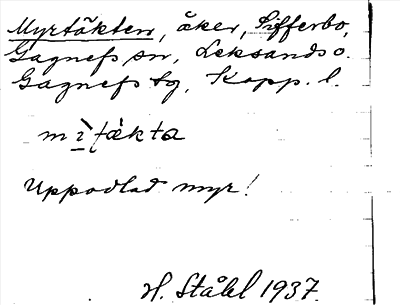 Myrtäkten, åker, Sifferbo,
Gagnefs sn, Leksands o.
Gagnefs tg, Kopp. l.
Uppodlad myr!
H. Ståhl 1937.